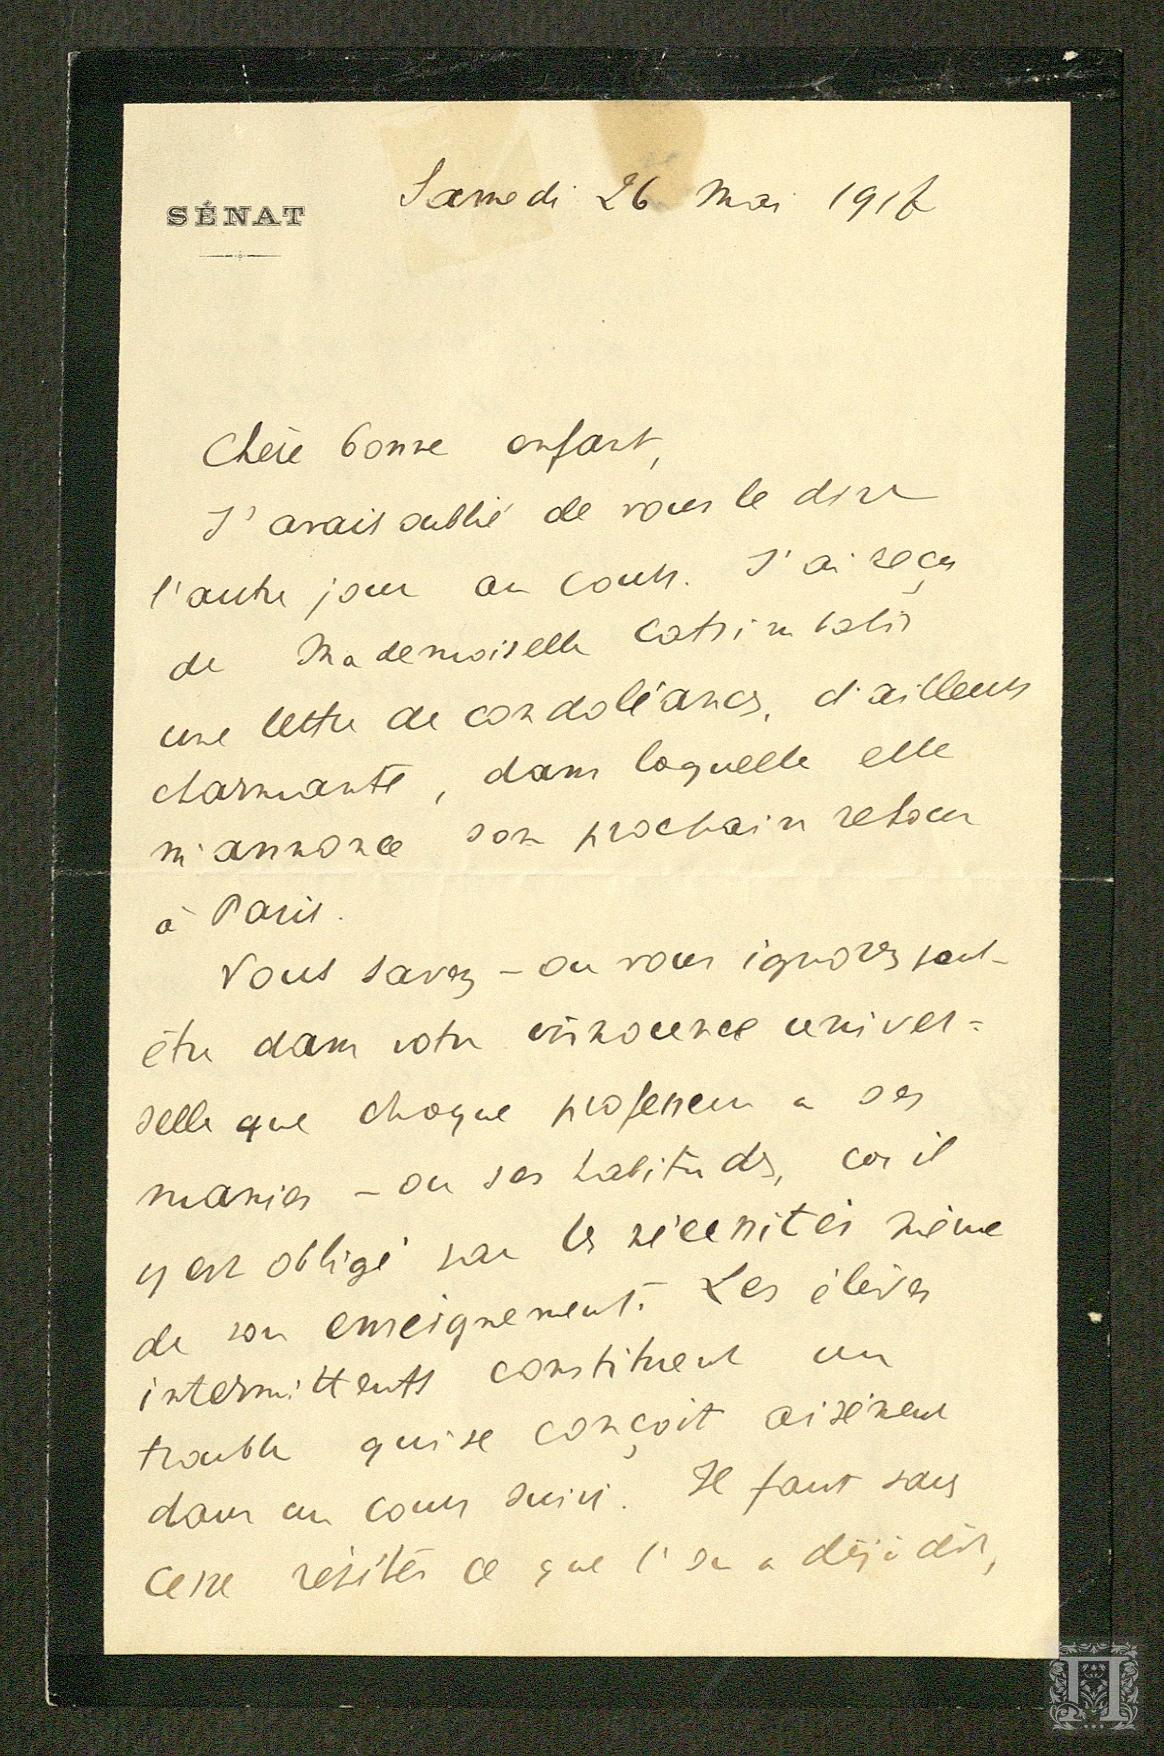 SÉNAT
Samedi 26 Mai 1917
Chère bonne enfant,
J'avais oublié de vous le dire
l'autre jour au cours. J'ai reçu
de Mademoiselle Catsimbalis
une lettre de condoléances, d'ailleurs
charmante, dans laquelle elle
m'annonce son prochain retour
à Paris.
Vous savez – ou vous ignorez peut-
être dans votre innocence univer=
selle que chaque professeur a ses
manies – ou ses habitudes, car il
y est obligé par les nécessités même
de son enseignement. Les élèves
intermittents constituent un
trouble qui se conçoit aisément
dans un cours suivi. Il faut sans
cesse répéter ce que l'on a déjà dit,